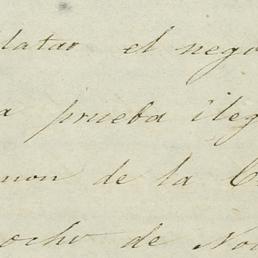 latar el nego
a prueba ileg
mon de la C
ocho de No